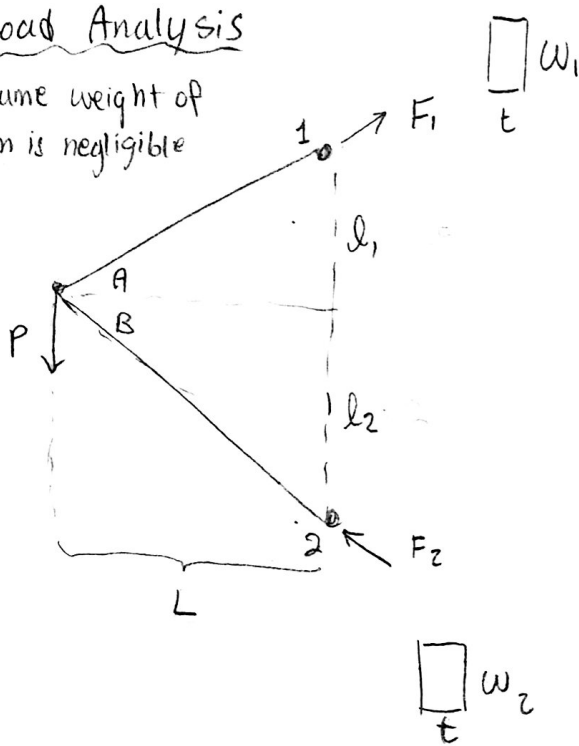 oad Analysis
ume weight of
n is negligible
ω₁
t
1
F₁
l₁
A
B
P
l₂
2
F₂
L
ω₂
t